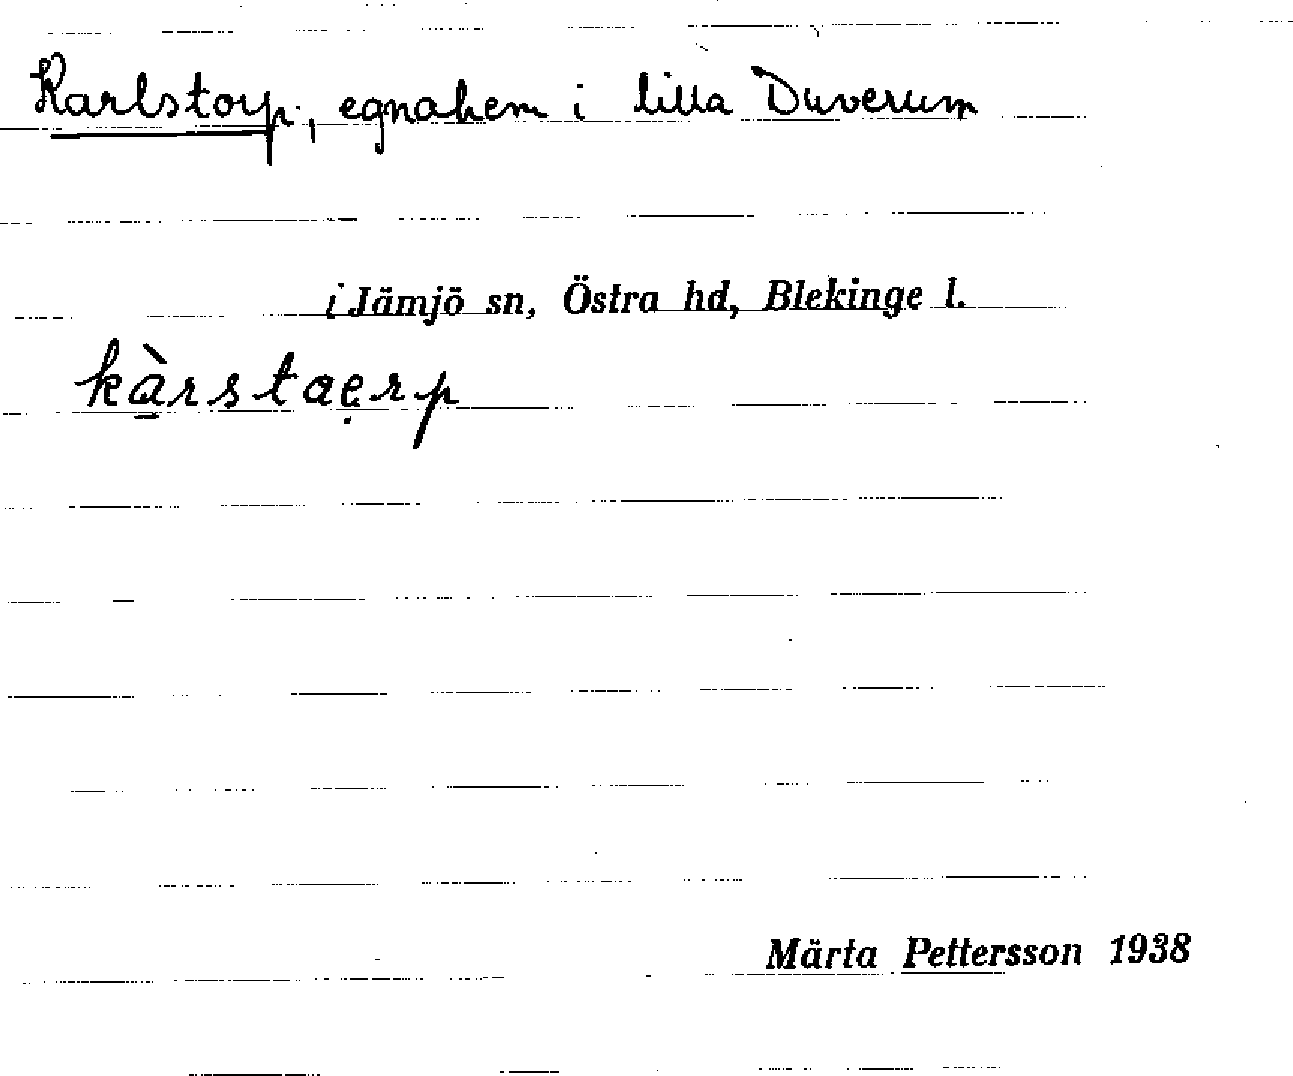 Karlstorp, egnahem i lilla Duverum
i Jämjö sn, Östra hd, Blekinge l.
kà̱rstaẹrp
Märta Pettersson 1938